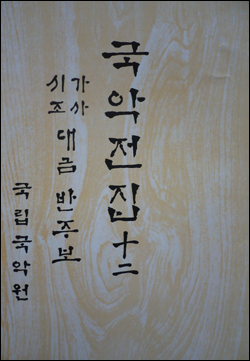 국악전집 十二
가사
시조
대금 반주보
국립국악원